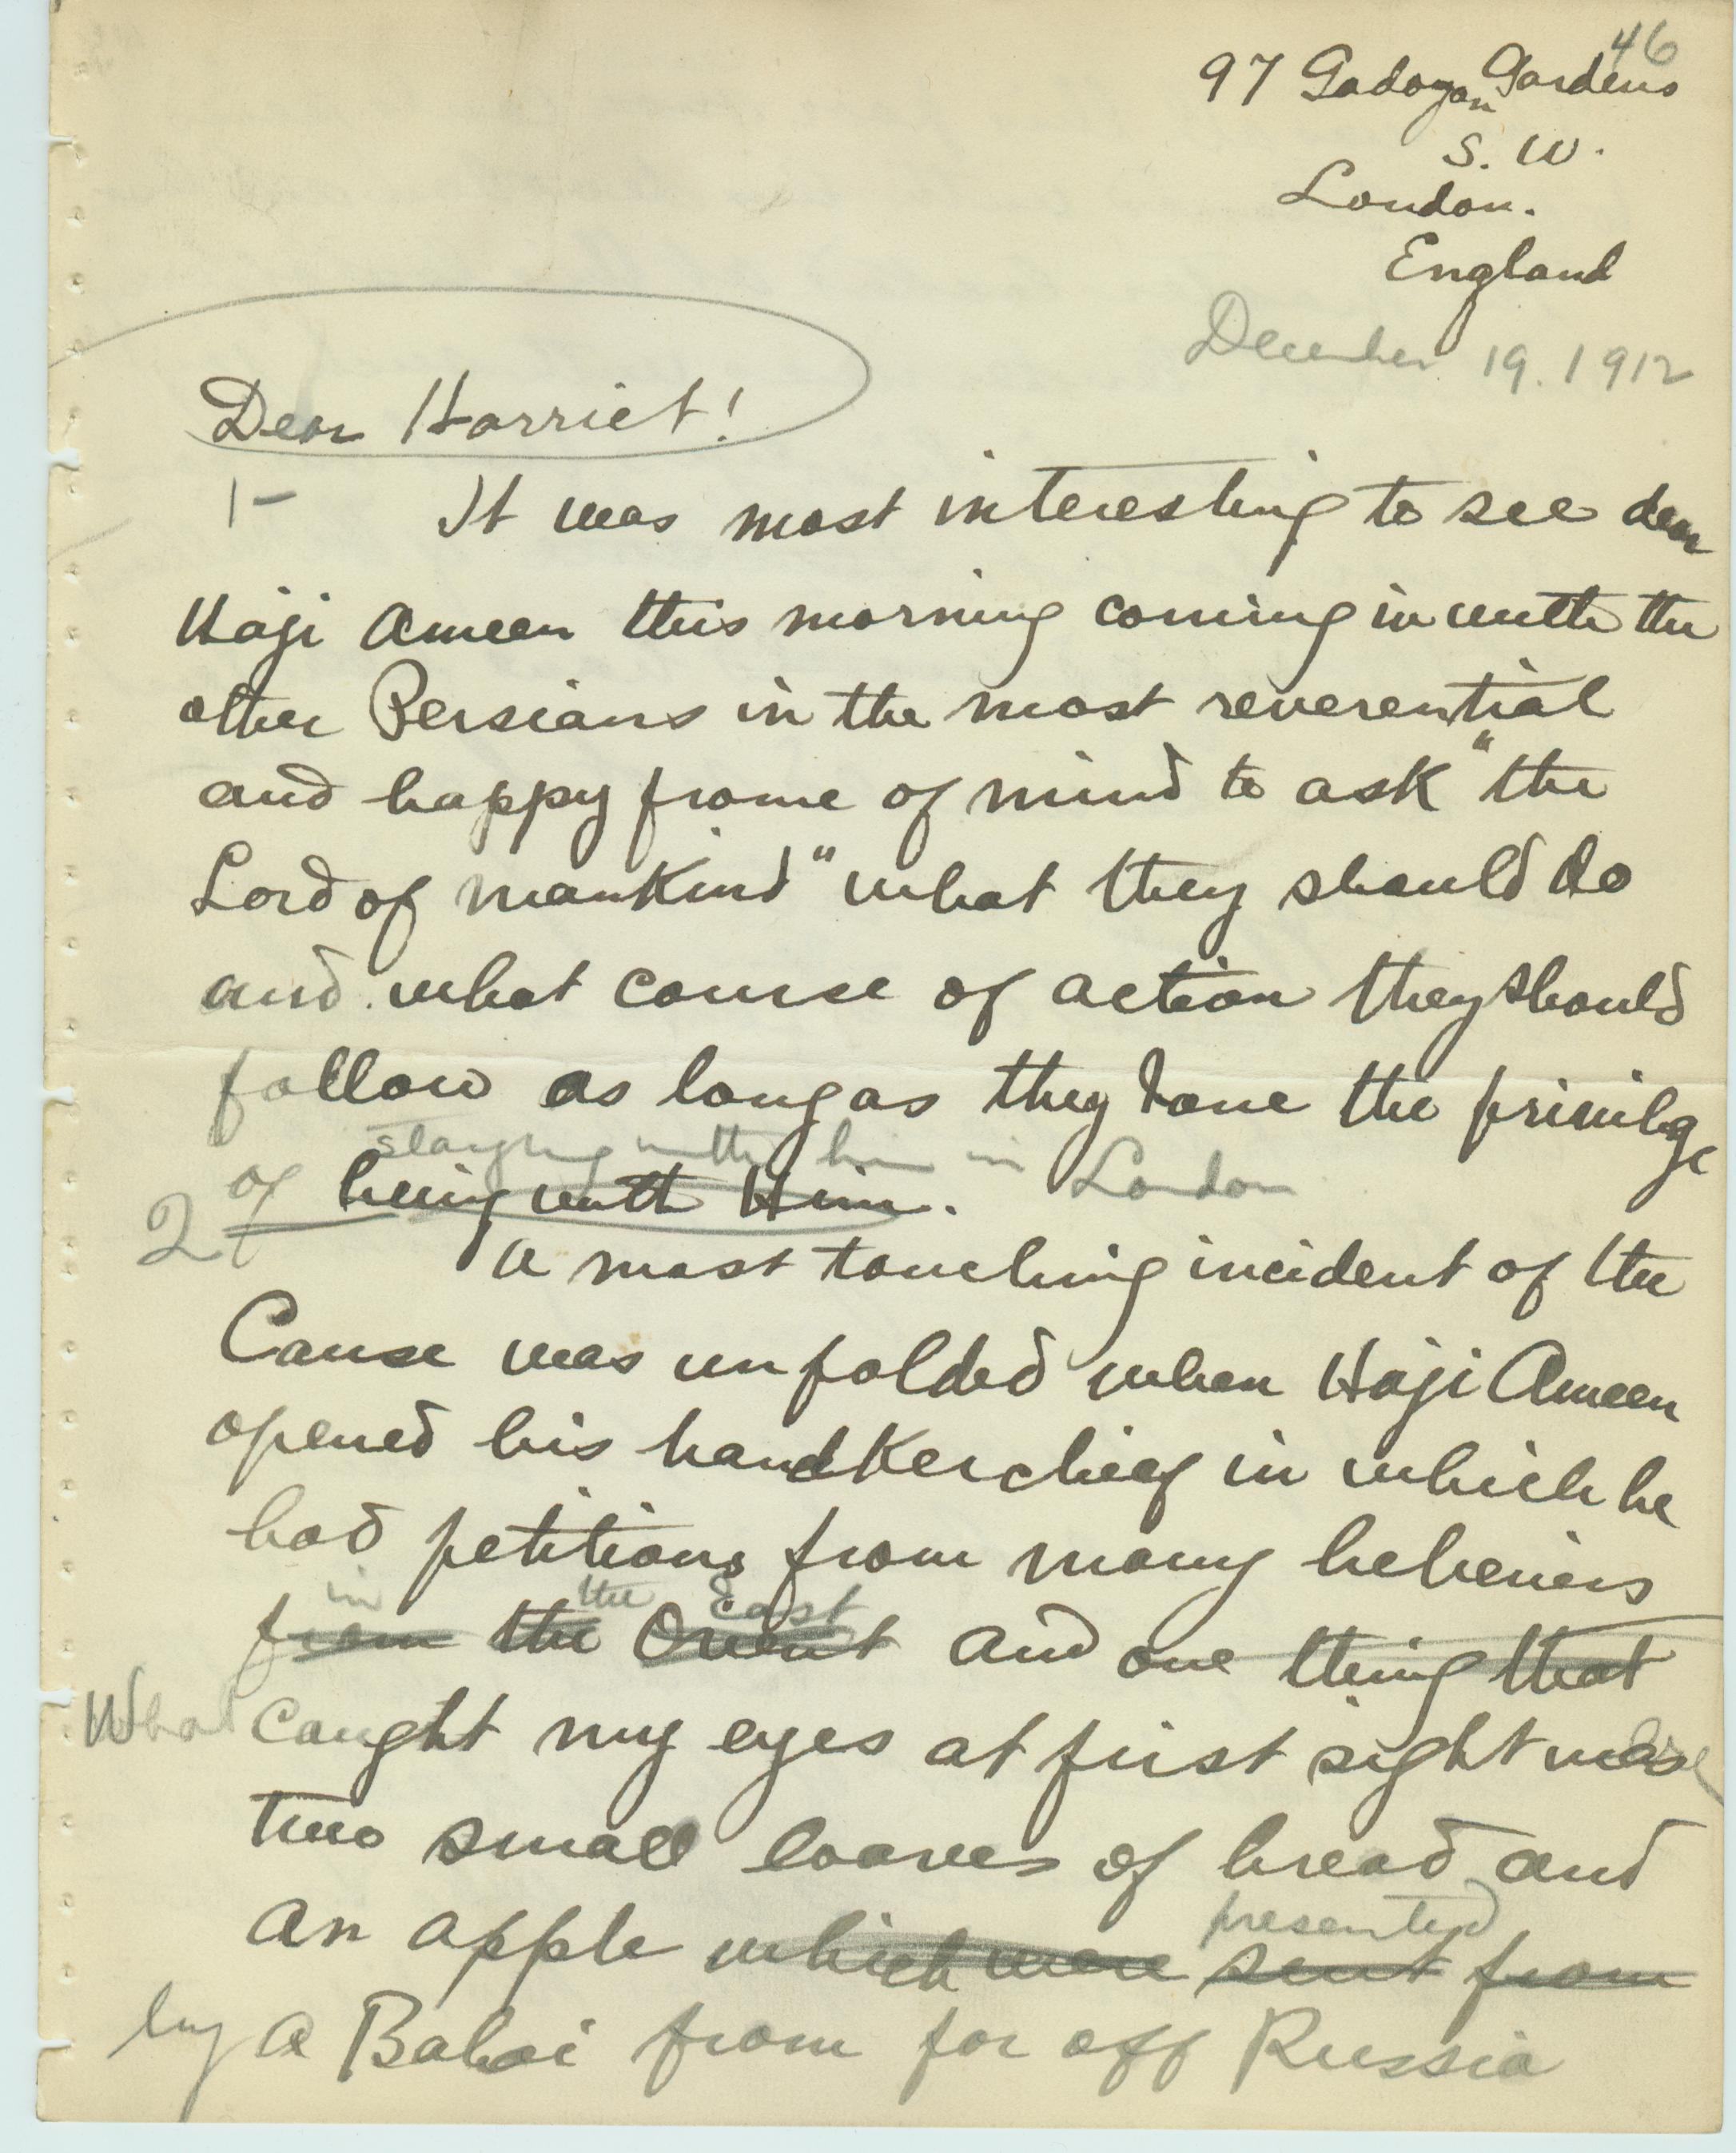 46
97 Gadogan Gardens
S. W.
London.
England
December 19. 1912
Dear Harriet!
1- It was most interesting to see dear
Haji Ameen this morning coming in with the
other Persians in the most reverential
and happy frame of mind to ask "the
Lord of mankind" what they should do
and what course of action they should
follow as long as they have the privilge
staying with him in London
2 of being with Him.
A most touching incident of the
Cause was unfolded when Haji Ameen
opened his handkerchief in which he
had petitions from many believers
in the East
from the Orient and one thing that
What caught my eyes at first sight was
two small loaves of bread and
presented
an apple which were sent from
by a Bahai from far off Russia